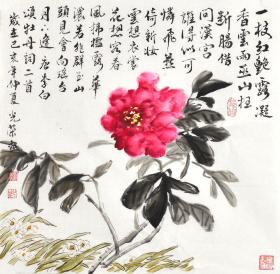 一枝红艳露凝
香云雨巫山枉
断肠借
问汉宫
谁得似可
怜飞燕
倚新妆
云想衣裳
花想容春
风拂槛露华
浓若非群玉山
头见会向瑶台
月下逢 唐李白
咏牡丹词二首
岁在己亥年仲夏